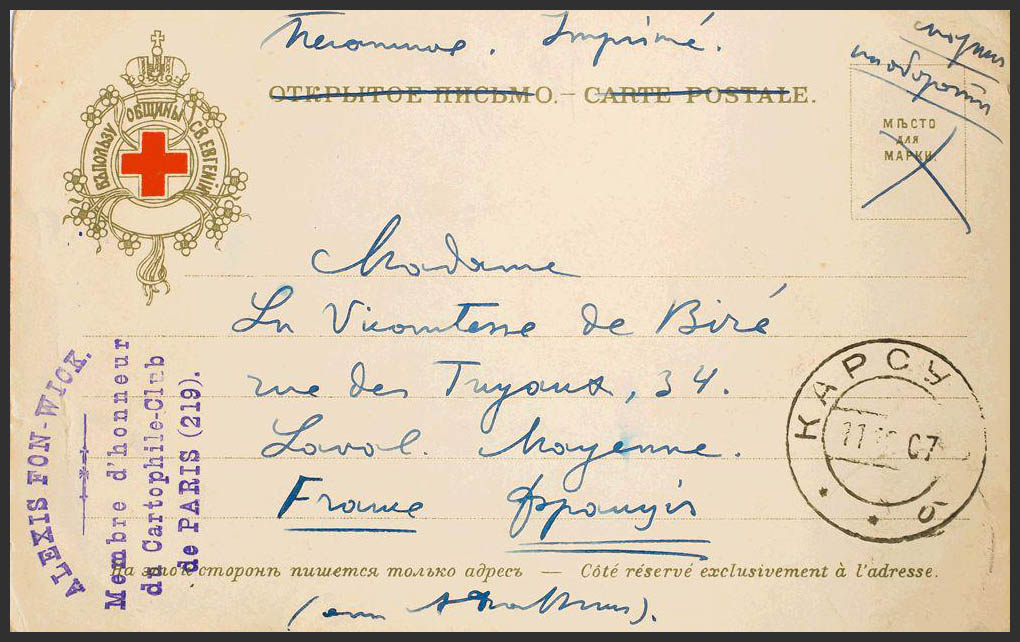 Печатное. Imprimé.
марки
на обороте
ОТКРЫТОЕ ПИСЬМО. – CARTE POSTALE.
ВЪ ПОЛЬЗУ ОБЩИНЫ СВ. ЕВГЕНІИ
МѢСТО
ДЛЯ
МАРКИ.
Madame
La Vicomtesse de Biré
rue des Tuyaux, 34.
Laval. Mayenne.
France Франція
КАРСУ
11 07
б
ALEXIS FON-WICK.
Membre d'honneur
du Cartophile-Club
de PARIS (219).
На этой сторонѣ пишется только адресъ — Côté réservé exclusivement à l'adresse.